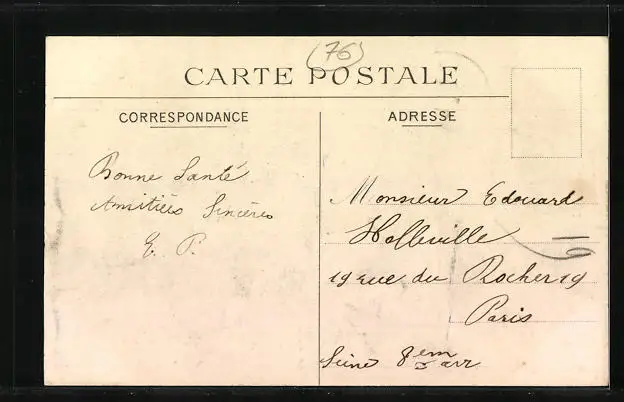 (76)
CARTE POSTALE
CORRESPONDANCE
ADRESSE
Bonne Santé
Amitiés Sincères
E. P.
Monsieur Edouard
Holleville
19 rue du Rocher 19
Paris
Seine 8em arr